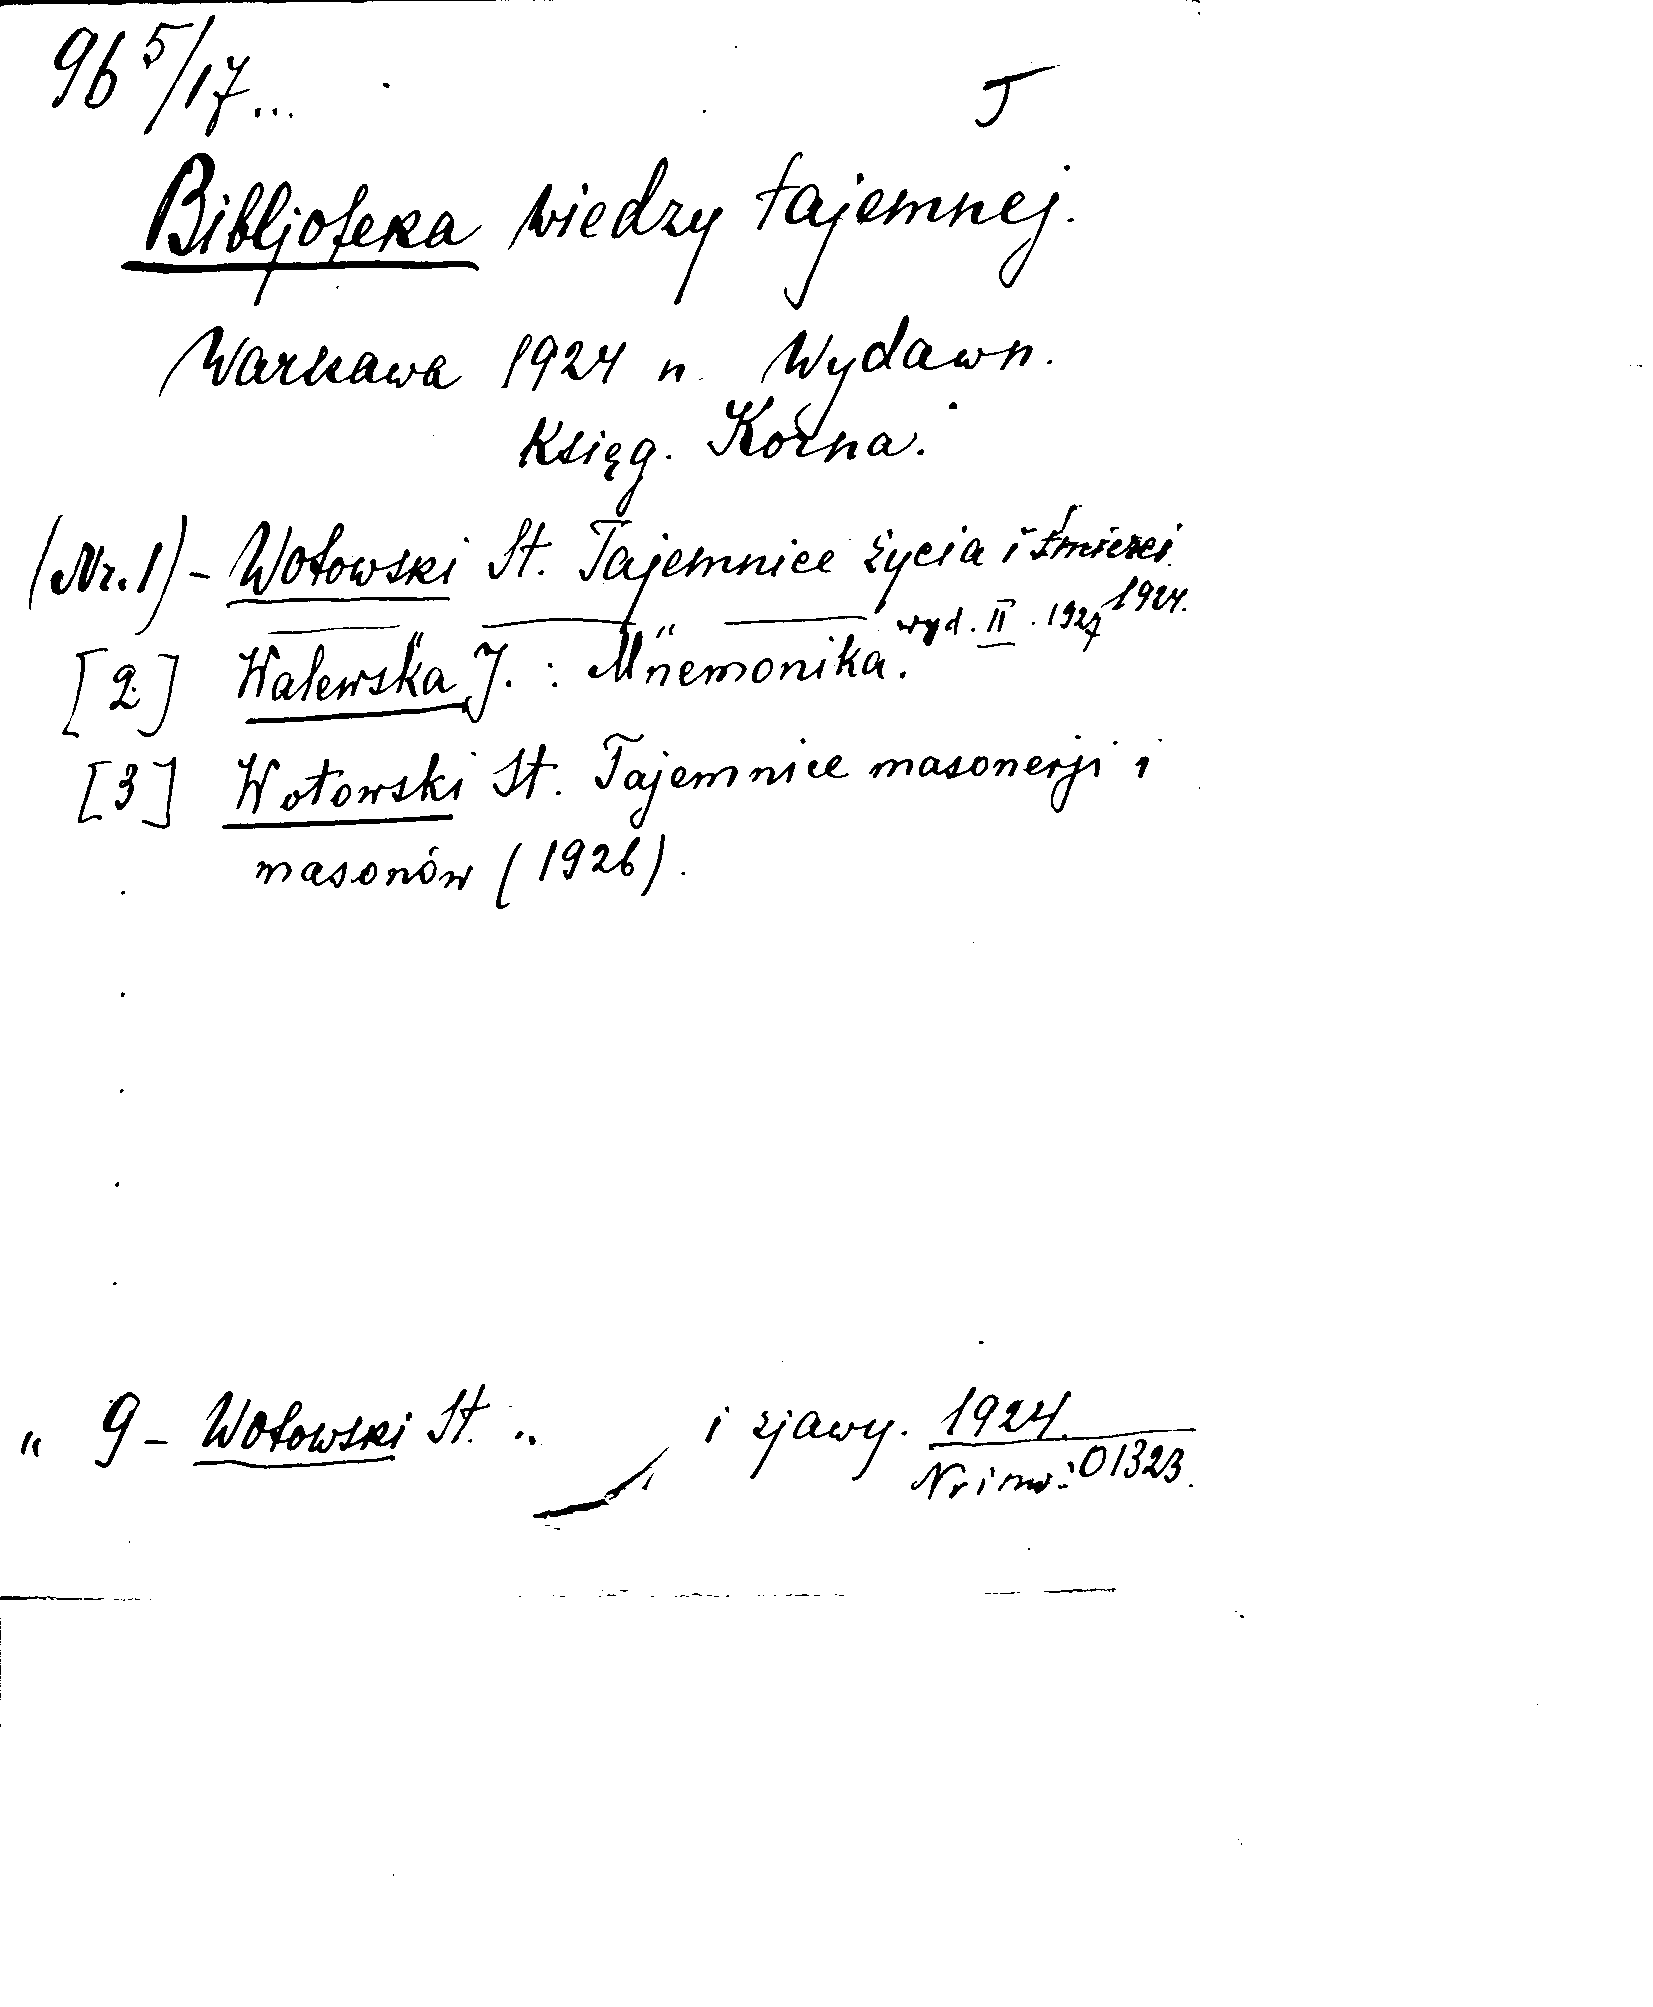 96 5/17...
J
Bibljoteka wiedzy tajemnej.
Warszawa 1924 n. Wydawn.
Księg. Korna.
(Nr. 1) - Wotowski St. Tajemnice życia i śmierci.
1924.
" " wyd. II. 1927
[2] Walewska J. : Mnemonika.
[3] Wotowski St. Tajemnice masonerji i
masonów (1926).
" 9 - Wotowski St. .. i zjawy. 1924.
Nr inw: 01323.